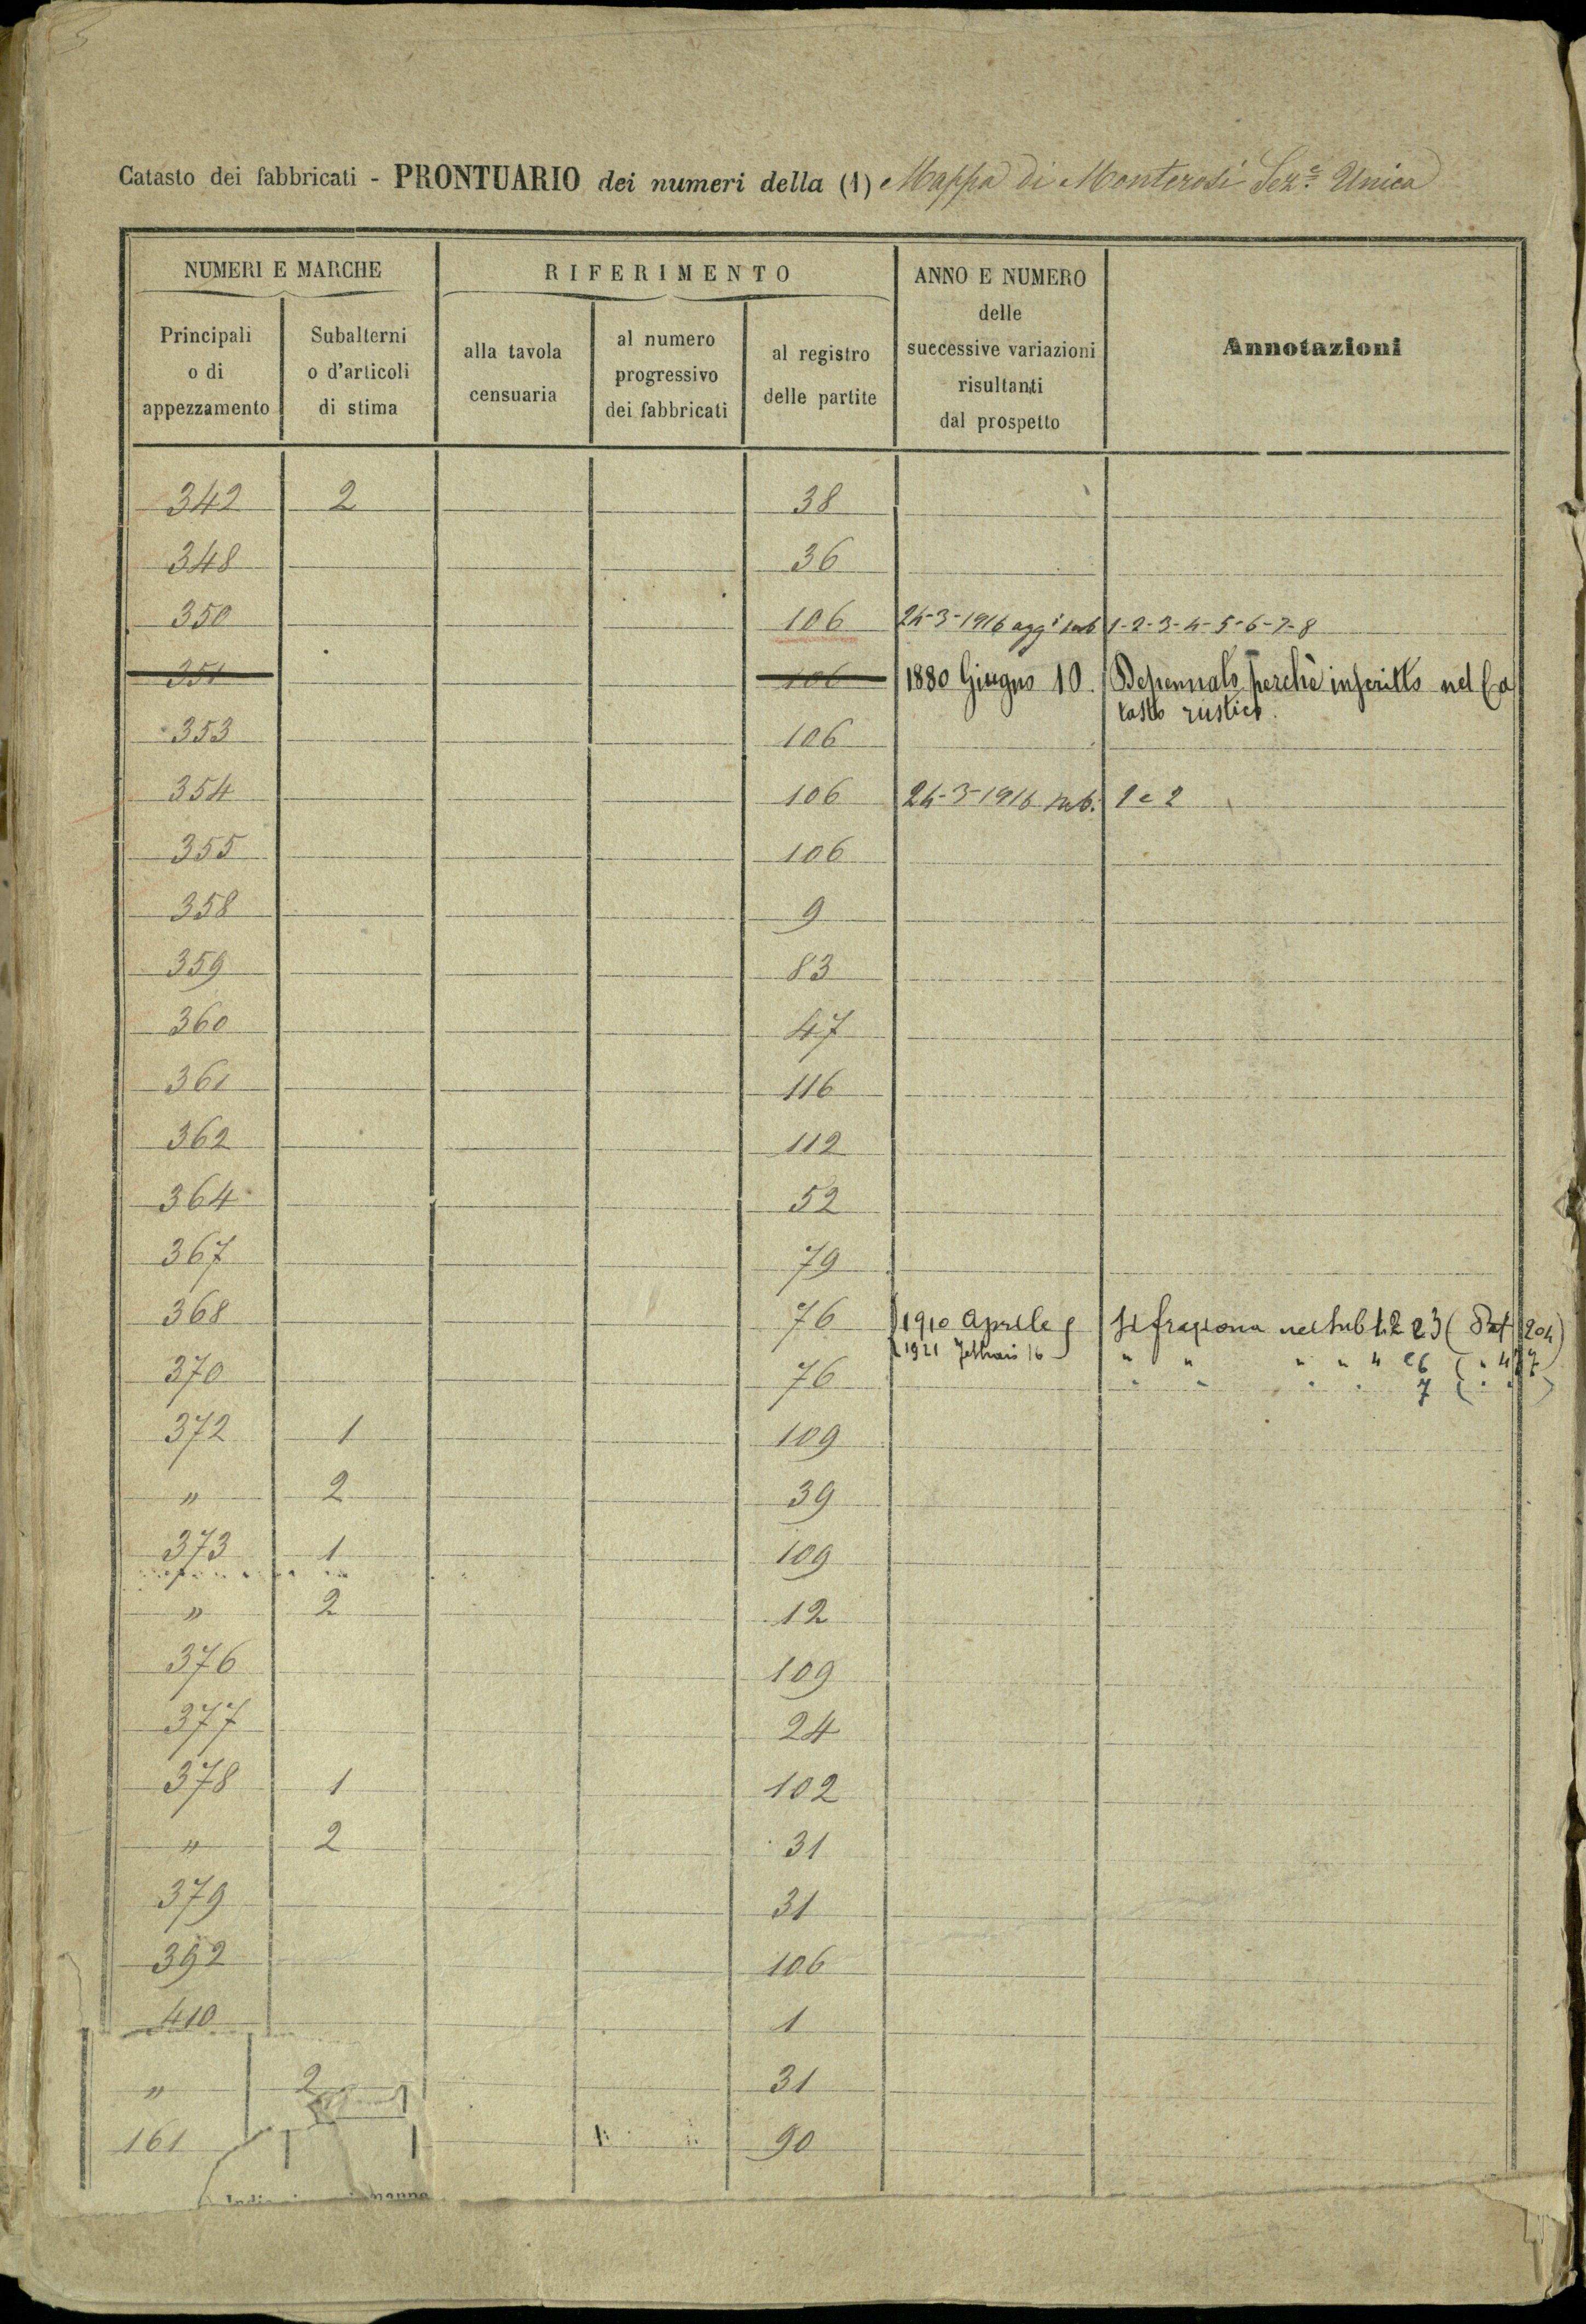 Catasto dei fabbricati - PRONTUARIO dei numeri della (1) Mappa di Monterosi Sez.e Unica
NUMERI E MARCHE
RIFERIMENTO
ANNO E NUMERO
delle
successive variazioni
risultanti
dal prospetto
Annotazioni
Principali
o di
appezzamento
Subalterni
o d'articoli
di stima
alla tavola
censuaria
al numero
progressivo
dei fabbricati
al registro
delle partite
342 2 38
348 36
350 106 24-3-1916 aggi sub 1-2-3-4-5-6-7-8
351 106 1880 Giugno 10. Depennato perchè inscritto nel Ca
tasto rustico.
353 106
354 106 24-3-1916 sub. 1 e 2
355 106
358 9
359 83
360 47
361 116
362 112
364 52
367 79
368 76 1910 Aprile Si fraziona nei sub 1.2 e 3 (Part 204)
1921 Febbraio 16 " " " " 4 e 6 ( " 477
370 76 " " " " 7 ( " " )
372 1 109
" 2 39
373 1 109
" 2 12
376 109
377 24
378 1 102
" 2 31
379 31
392 106
410 1
" 2 31
161 90